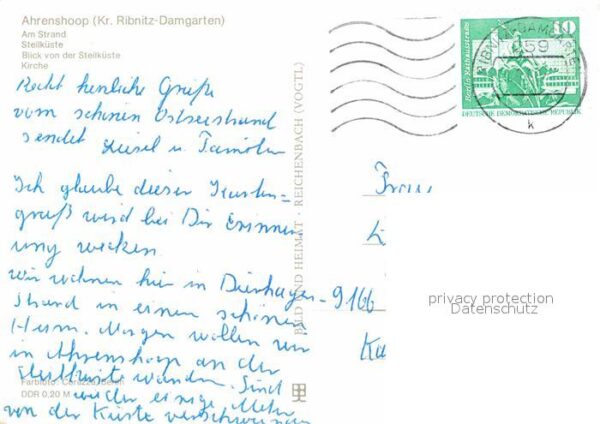 Ahrenshoop (Kr. Ribnitz-Damgarten)
Am Strand
Steilküste
Blick von der Steilküste
Kirche
Recht herzliche Grüße
vom schönen Ostseestrand
sendet Liesel u. Familie
Ich glaube dieser Karten-
gruß wird bei Dir Erinner-
ung wecken
wir wohnen hier in Dierhagen-
Strand in einem schönen
Heim. Morgen wollen wir
in Ahrenshoop an der
Steilküste wandern. Sind
wieder einige Meter
von der Küste verschwunden
Farbfoto:
DDR 0,20 M
BILD UND HEIMAT · REICHENBACH (VOGTL)
Berlin Rathausstraße
10
DEUTSCHE DEMOKRATISCHE REPUBLIK
RIBNITZ-DAMGARTEN
259
k
9166
privacy protection
Datenschutz